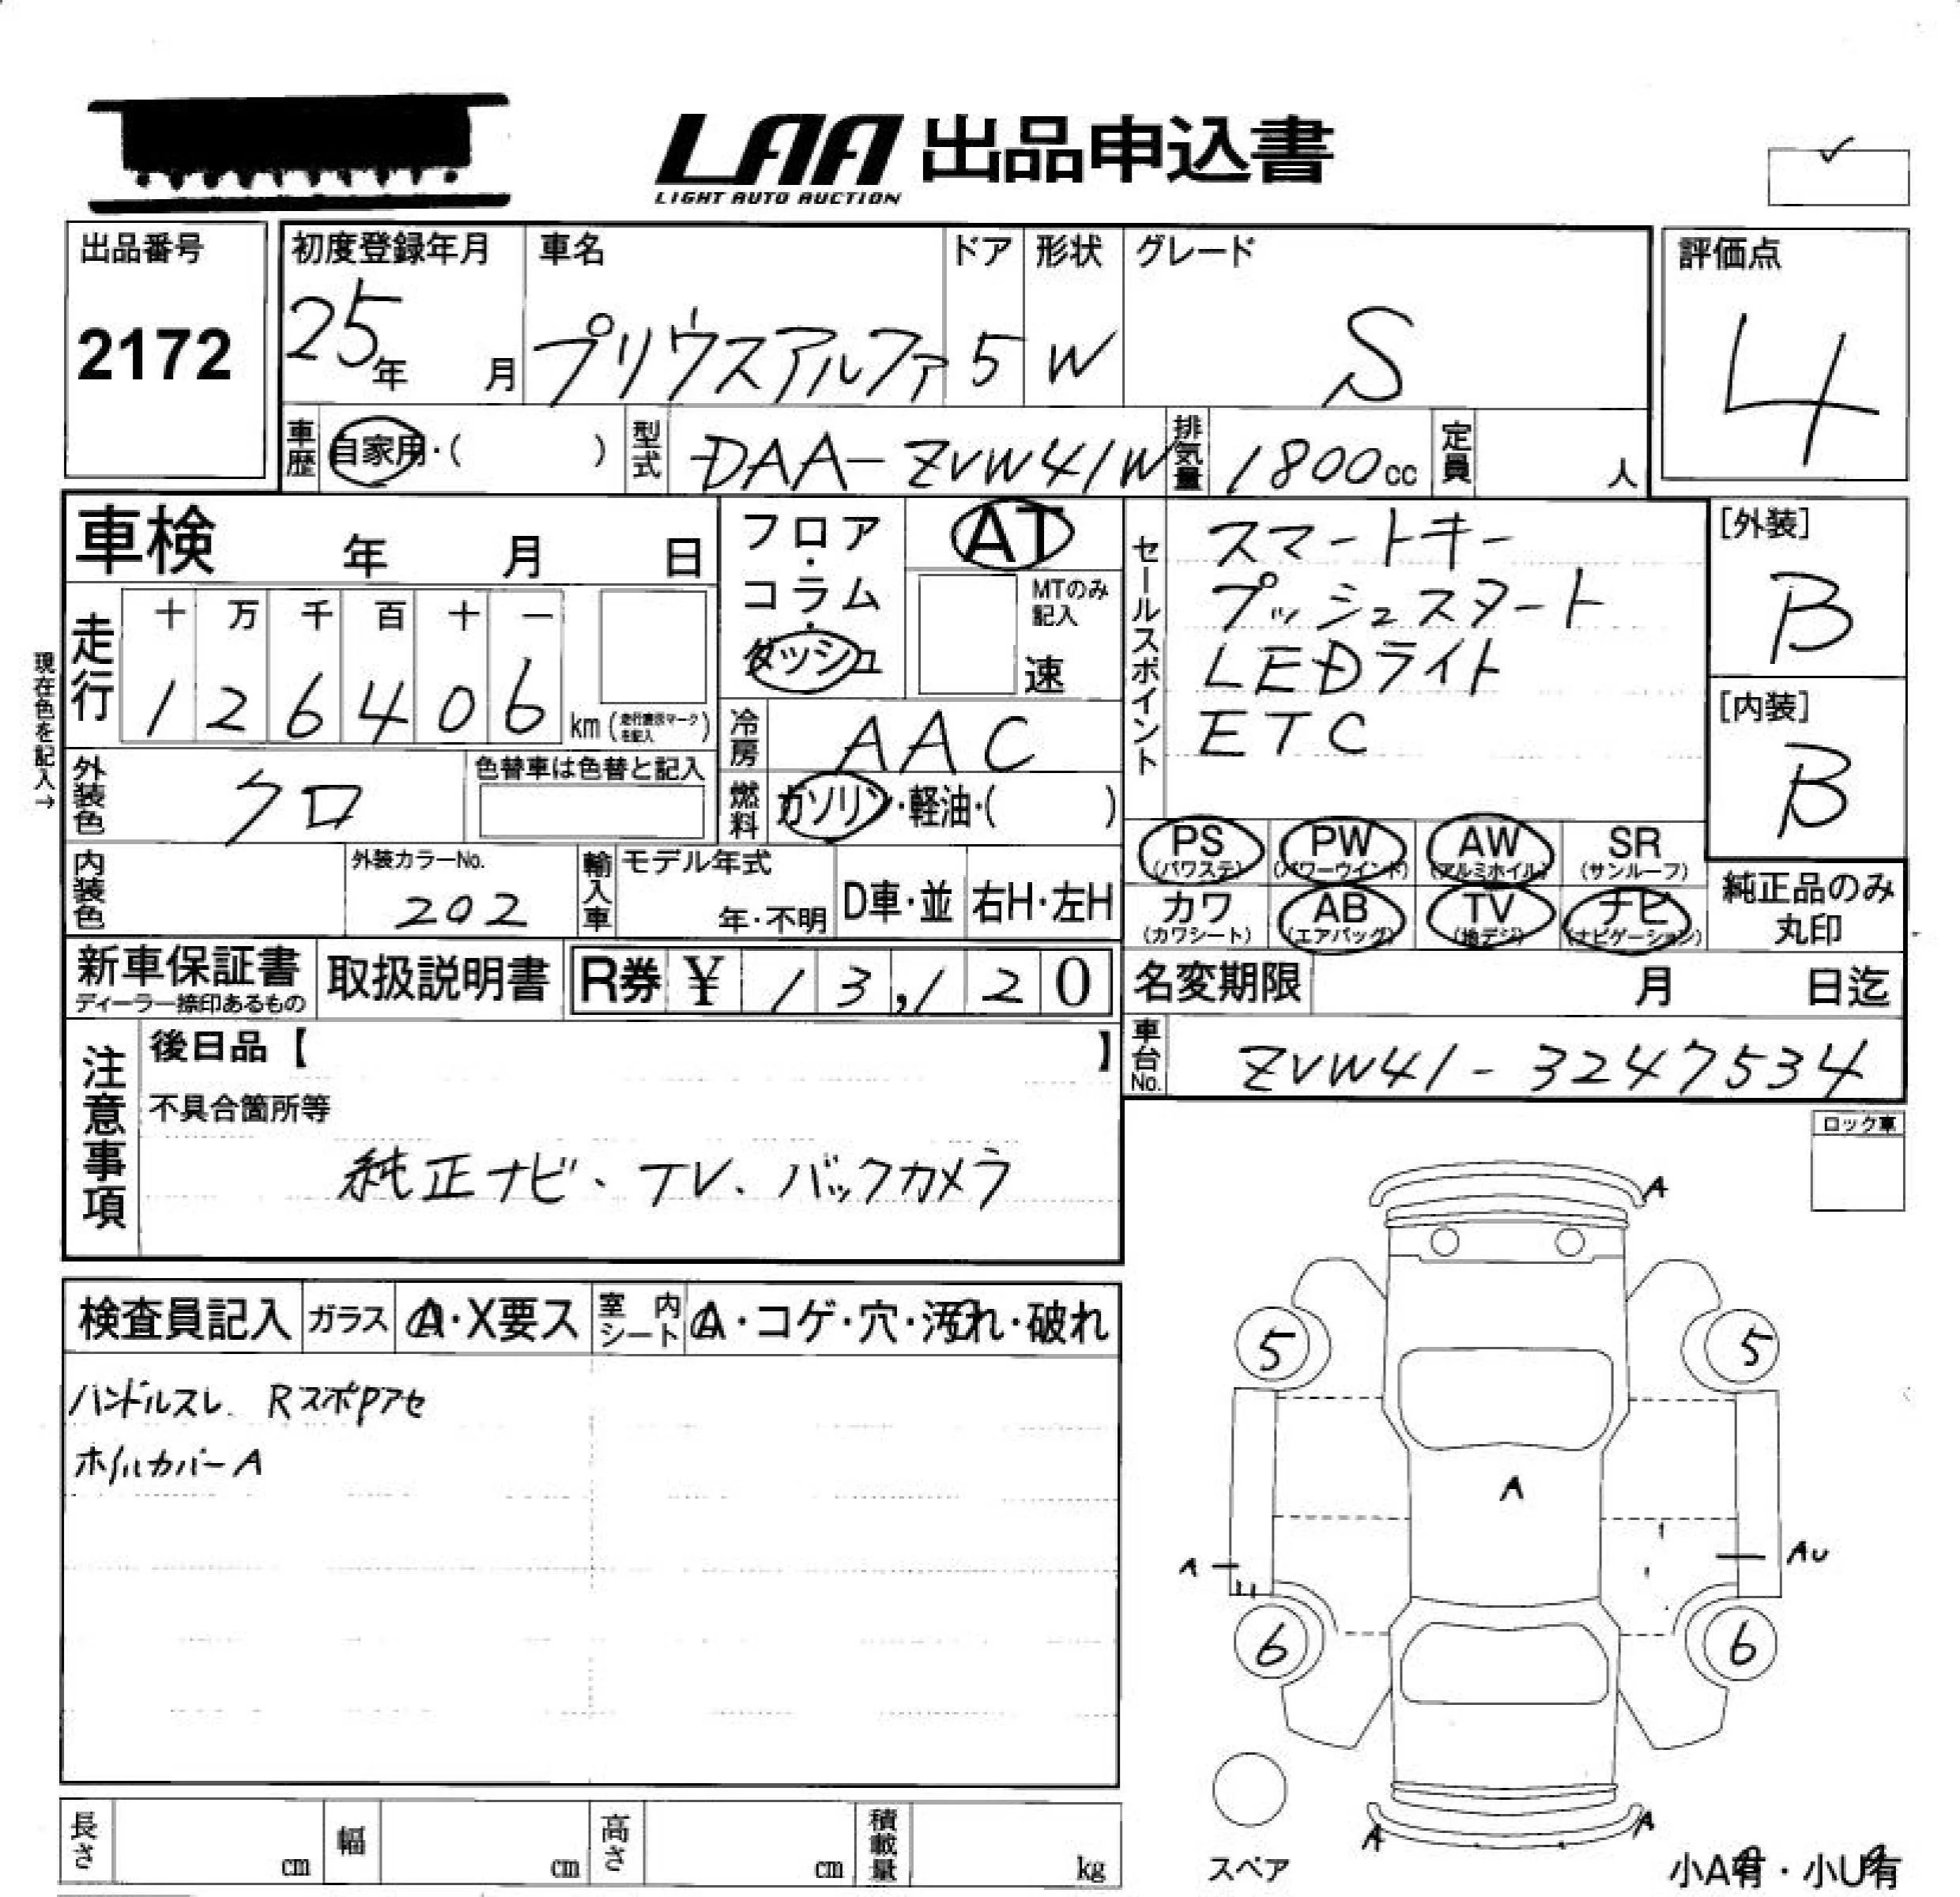 LAA 出品申込書
LIGHT AUTO AUCTION
出品番号
2172
初度登録年月
25年 月
車名
プリウスアルファ
ドア
5
形状
W
グレード
S
評価点
4
車歴 自家用・( )
型式 DAA-ZVW41W
排気量 1800cc
定員 人
車検 年 月 日
フロア・コラム・ダッシュ
AT
MTのみ記入
速
セールスポイント
スマートキー
プッシュスタート
LEDライト
ETC
[外装]
B
[内装]
B
現在色を記入→
走行
十 万 千 百 十 一
1 2 6 4 0 6 km (走行表示マークを記入)
冷房 AAC
外装色 クロ
色替車は色替と記入
燃料 ガソリン・軽油・( )
PS (パワステ) PW (パワーウインド) AW (アルミホイル) SR (サンルーフ)
カワ (カワシート) AB (エアバッグ) TV (地デジ) ナビ (ナビゲーション)
純正品のみ
丸印
内装色
外装カラーNo.
202
輸入車
モデル年式
年・不明
D車・並
右H・左H
新車保証書
ディーラー捺印あるもの
取扱説明書
R券 ¥ 1 3,1 2 0
名変期限 月 日迄
車台No. ZVW41-3247534
注意事項
後日品【 】
不具合箇所等
純正ナビ、TV、バックカメラ
ロック車
検査員記入
ガラス A・X要ス
室内シート A・コゲ・穴・汚れ・破れ
ハンドルスレ. RスポPアセ
ホイルカバーA
A
5
5
A
A
AU
6
6
A
A
スペア
小A有・小U有
長さ cm
幅 cm
高さ cm
積載量 kg